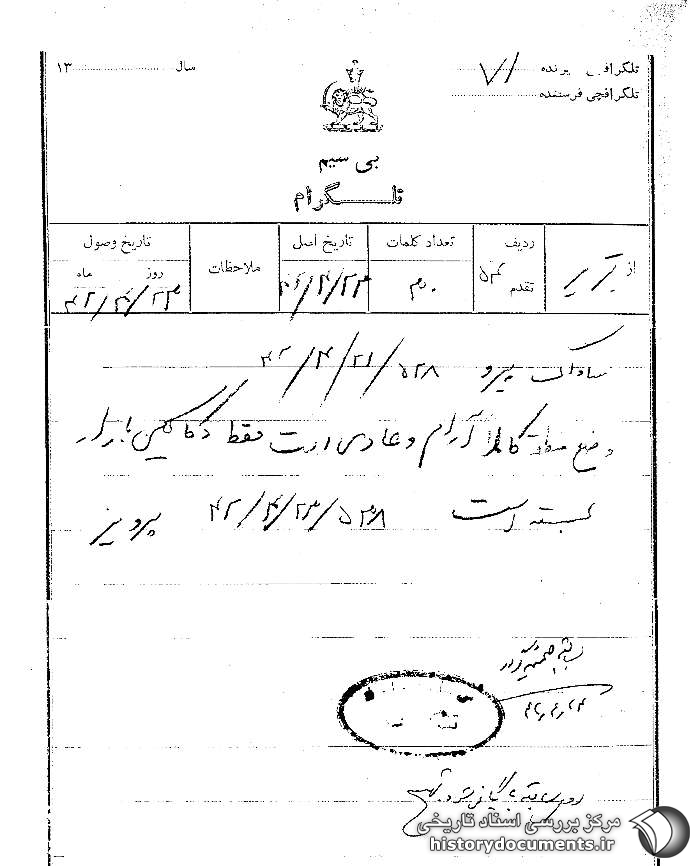 تلگرافچی گیرنده ........ ۷۱
تلگرافچی فرستنده ........
سال ........ ۱۳
بی سیم
تلگرام
از تبریز
ردیف تقدم
تعداد کلمات ۳۰
تاریخ اصل ۴۲/۴/۲۳
ملاحظات
تاریخ وصول
روز ماه
۴۲/۴/۲۳
ساواک پیرو ۵۲۸/۲۱/۴/۴۲
وضع منطقه کاملا آرام و عادی است فقط دکاکین بازار
بسته است ۵۳۸/۲۳/۴/۴۲ پرویز
۴۲،۴،۲۳
مرکز بررسی اسناد تاریخی
historydocuments.ir